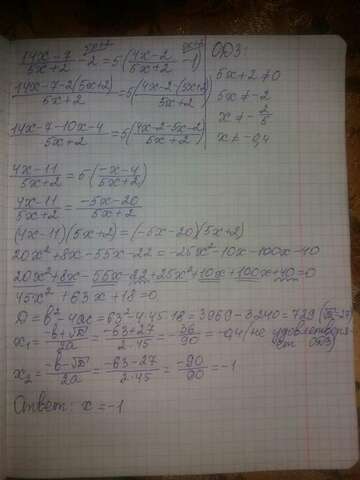 (14x-7)/(5x+2) - 2 = 5((4x-2)/(5x+2) - 1)
ОДЗ:
(14x-7-2(5x+2))/(5x+2) = 5((4x-2-(5x+2))/(5x+2))
5x+2≠0
5x≠-2
x≠-2/5
x≠-0,4
(14x-7-10x-4)/(5x+2) = 5((4x-2-5x-2)/(5x+2))
(4x-11)/(5x+2) = 5((-x-4)/(5x+2))
(4x-11)/(5x+2) = (-5x-20)/(5x+2)
(4x-11)(5x+2)=(-5x-20)(5x+2)
20x²+8x-55x-22=-25x²-10x-100x-40
20x²+8x-55x-22+25x²+10x+100x+40=0
45x²+63x+18=0
D=b²-4ac=63²-4·45·18=3969-3240=729 (√D=27)
x₁=(-b+√D)/2a=(-63+27)/(2·45)=-36/90=-0,4 (не удовлетворяет ОДЗ)
x₂=(-b-√D)/2a=(-63-27)/(2·45)=-90/90=-1
Ответ: x=-1